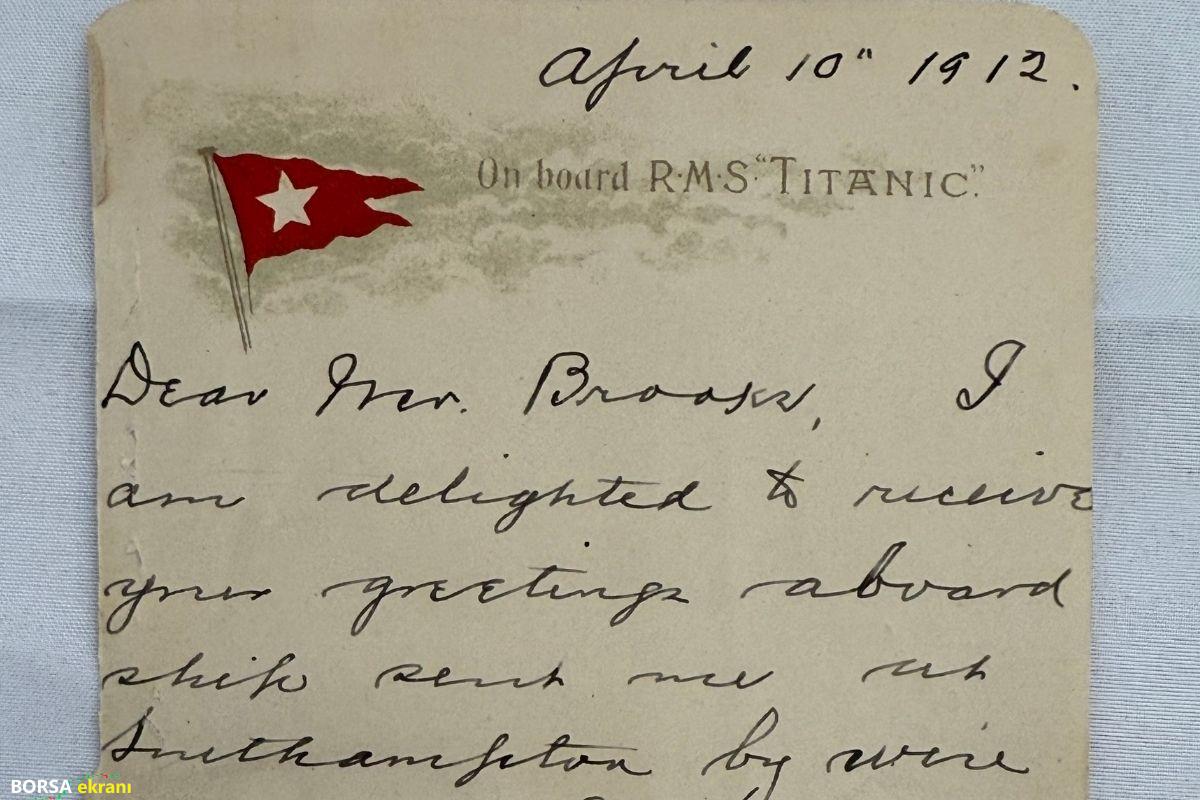 April 10" 1912.
On board R·M·S "TITANIC".
Dear Mr. Brooks, I
am delighted to receive
your greetings aboard
ship sent me at
Southampton by wire
BORSA ekranı